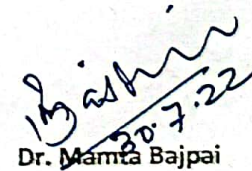 30.7.22
Dr. Mamta Bajpai